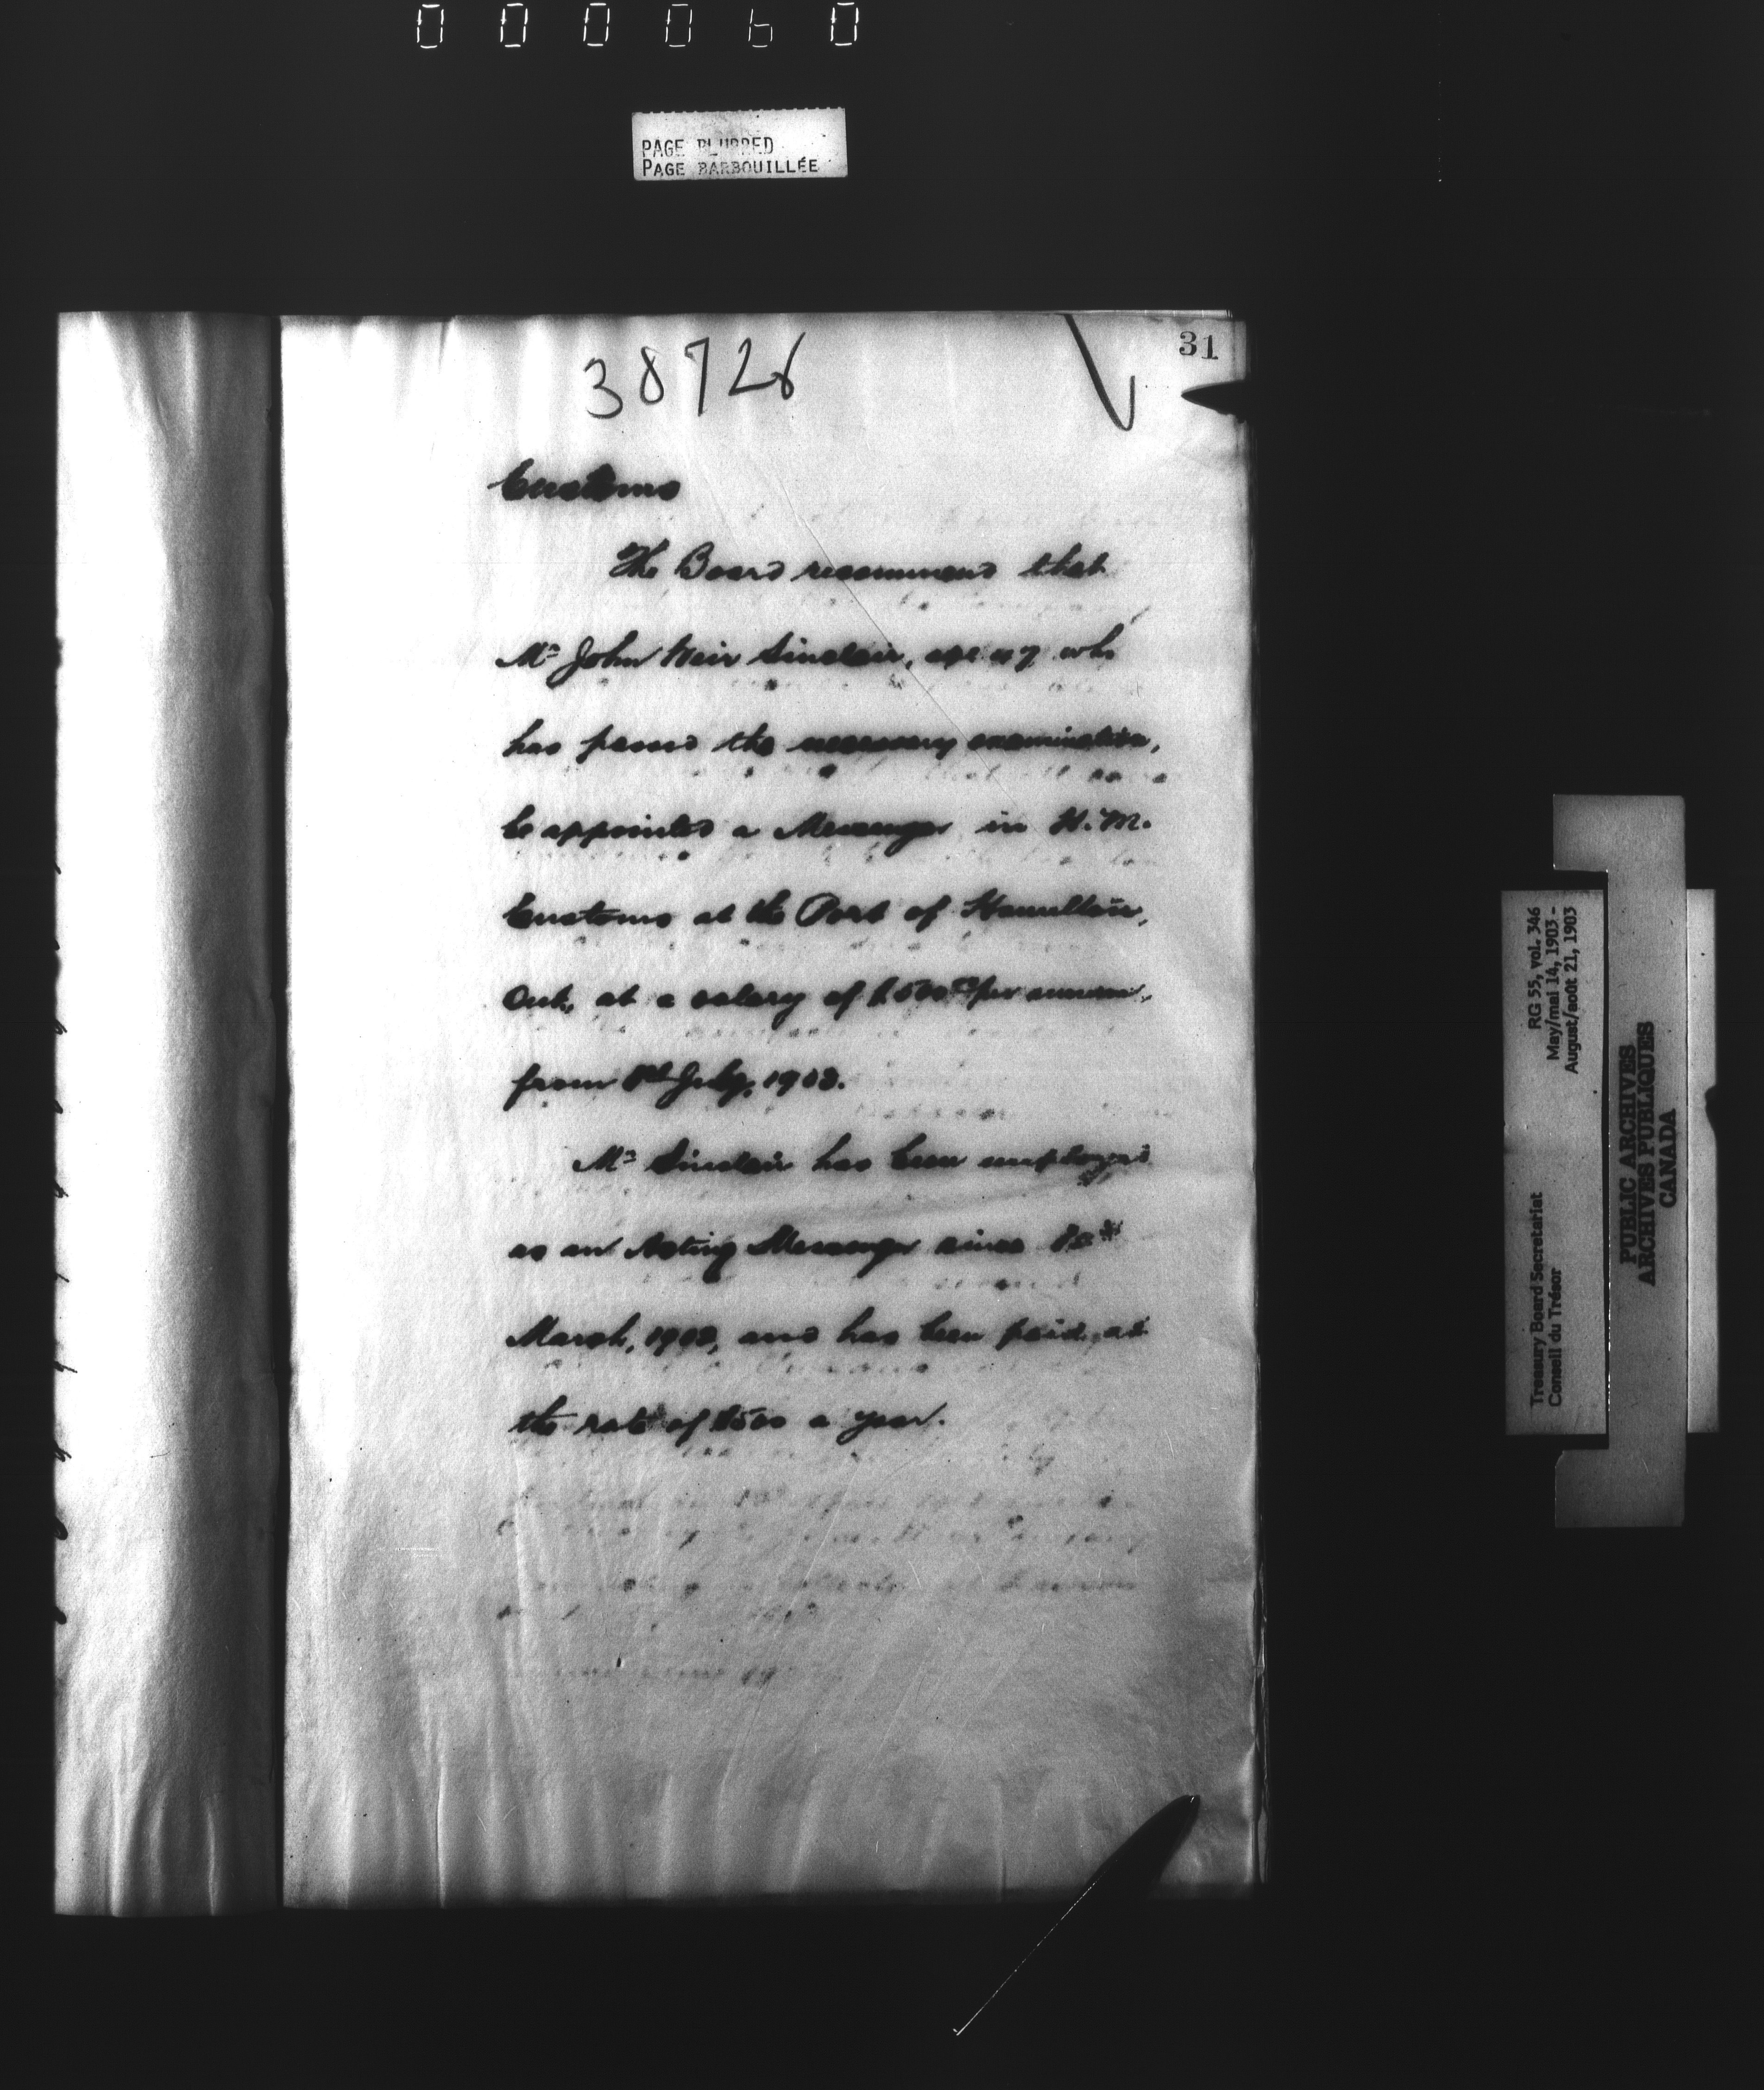 000060
PAGE BLURRED
PAGE BARBOUILLÉE
31
38726
Customs
The Board recommend that
Mr John Weir Sinclair, age 47 who
has passed the necessary examination,
be appointed a Messenger in H.M.
Customs at the Port of Hamilton,
Ont., at a salary of $500 per annum,
from 1st July, 1903.
Mr Sinclair has been employed
as an Acting Messenger since
March, 1903, and has been paid at
the rate of $500 a year.
RG 55, vol. 346
May/mai 14, 1903 -
August/août 21, 1903
Treasury Board Secretariat
Conseil du Trésor
PUBLIC ARCHIVES
ARCHIVES PUBLIQUES
CANADA